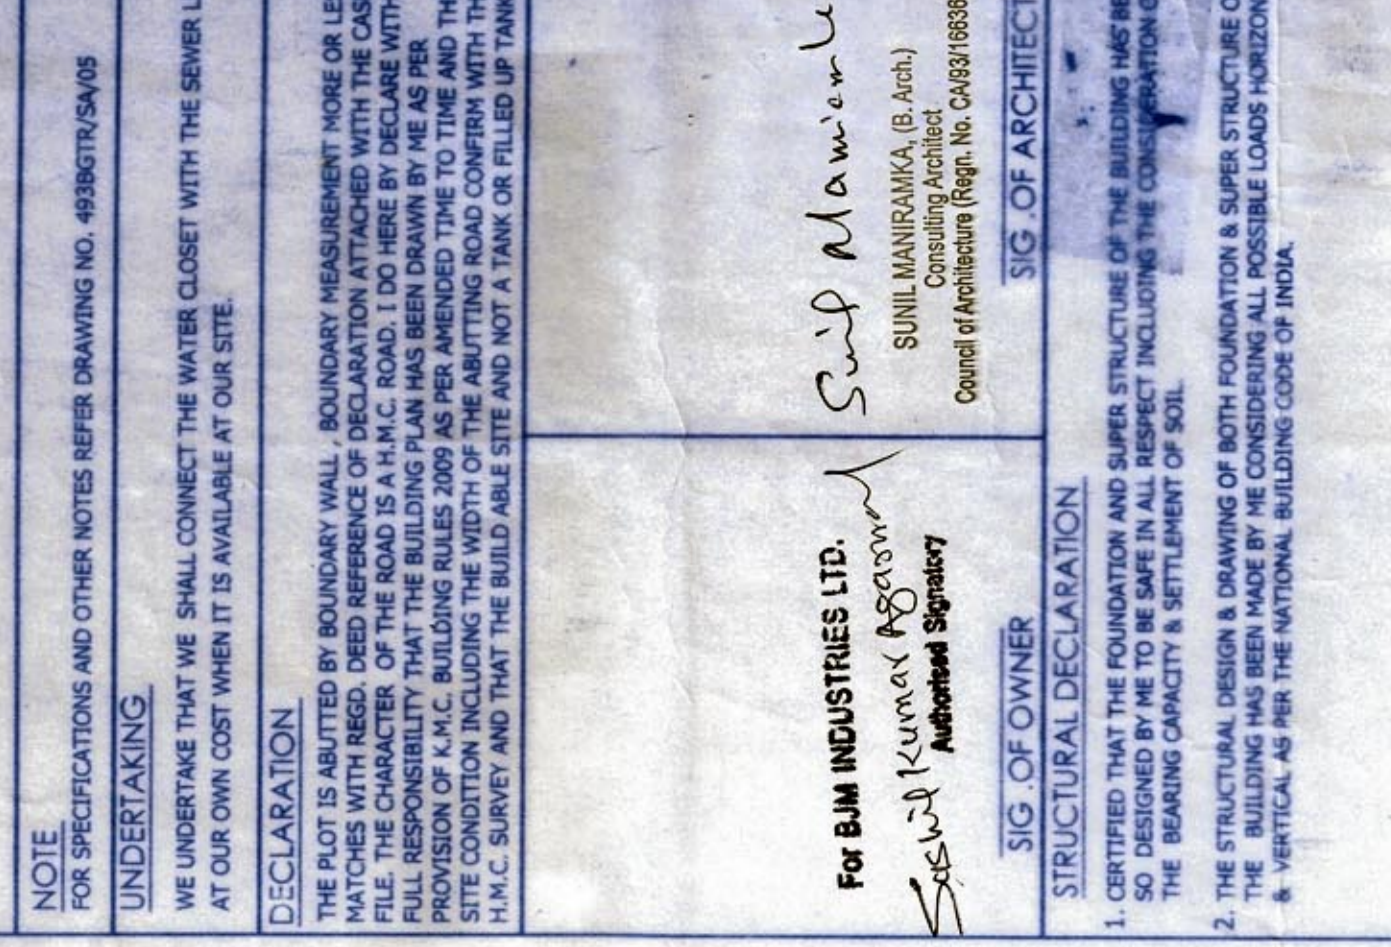 NOTE
FOR SPECIFICATIONS AND OTHER NOTES REFER DRAWING NO. 493BGTR/SA/05
UNDERTAKING
WE UNDERTAKE THAT WE SHALL CONNECT THE WATER CLOSET WITH THE SEWER L
AT OUR OWN COST WHEN IT IS AVAILABLE AT OUR SITE.
DECLARATION
THE PLOT IS ABUTTED BY BOUNDARY WALL, BOUNDARY MEASUREMENT MORE OR LE
MATCHES WITH REGD. DEED REFERENCE OF DECLARATION ATTACHED WITH THE CAS
FILE. THE CHARACTER OF THE ROAD IS A H.M.C. ROAD. I DO HERE BY DECLARE WITH
FULL RESPONSIBILITY THAT THE BUILDING PLAN HAS BEEN DRAWN BY ME AS PER
PROVISION OF K.M.C. BUILDING RULES 2009 AS PER AMENDED TIME TO TIME AND TH
SITE CONDITION INCLUDING THE WIDTH OF THE ABUTTING ROAD CONFIRM WITH TH
H.M.C. SURVEY AND THAT THE BUILD ABLE SITE AND NOT A TANK OR FILLED UP TANK
For BJM INDUSTRIES LTD.
Sushil Kumar Agarwal
Authorised Signatory
SIG .OF OWNER
Sunil Maniramka
SUNIL MANIRAMKA, (B. Arch.)
Consulting Architect
Council of Architecture (Regn. No. CA/93/16636
SIG .OF ARCHITECT
STRUCTURAL DECLARATION
1. CERTIFIED THAT THE FOUNDATION AND SUPER STRUCTURE OF THE BUILDING HAS BE
SO DESIGNED BY ME TO BE SAFE IN ALL RESPECT INCLUDING THE CONSIDERATION O
THE BEARING CAPACITY & SETTLEMENT OF SOIL.
2. THE STRUCTURAL DESIGN & DRAWING OF BOTH FOUNDATION & SUPER STRUCTURE O
THE BUILDING HAS BEEN MADE BY ME CONSIDERING ALL POSSIBLE LOADS HORIZON
& VERTICAL AS PER THE NATIONAL BUILDING CODE OF INDIA.